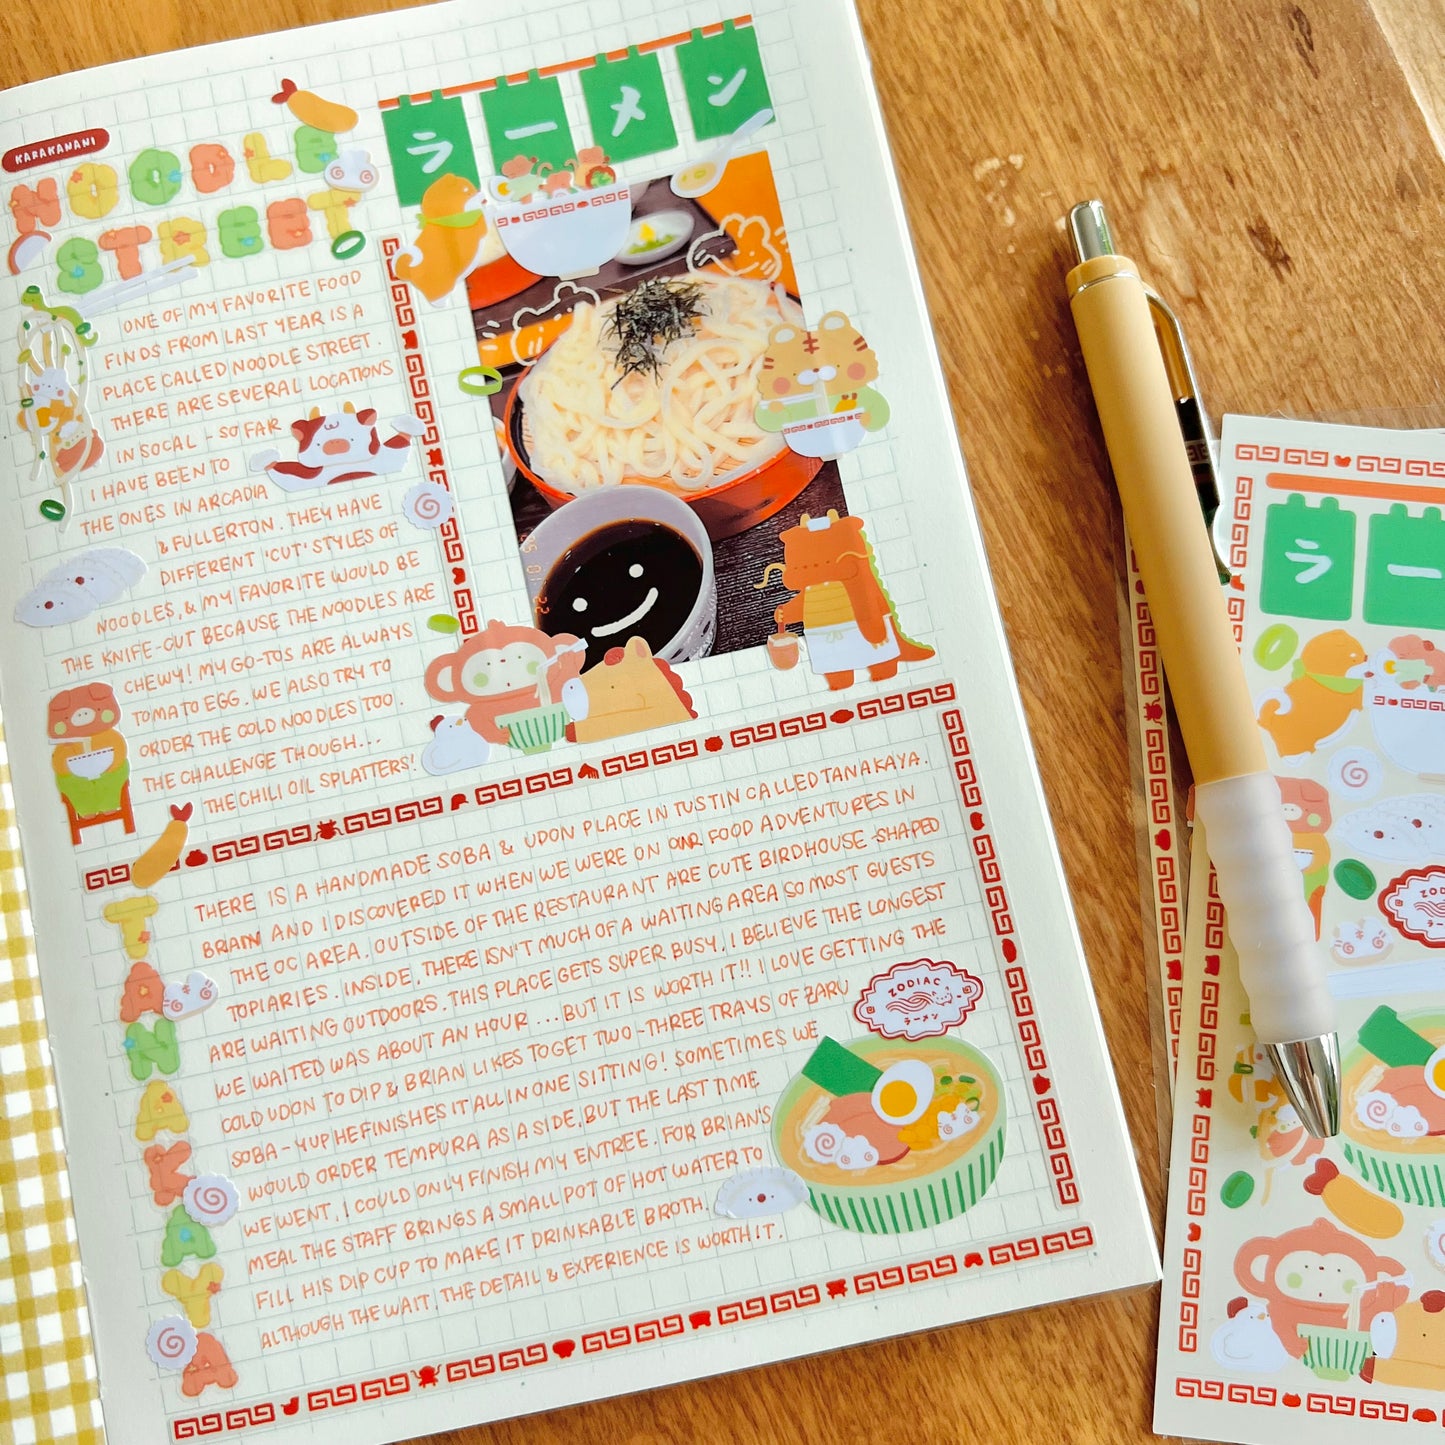 KARAKANANI
NOODLE
STREET
ラーメン
ONE OF MY FAVORITE FOOD
FINDS FROM LAST YEAR IS A
PLACE CALLED NOODLE STREET.
THERE ARE SEVERAL LOCATIONS
IN SOCAL - SO FAR
I HAVE BEEN TO
THE ONES IN ARCADIA
& FULLERTON. THEY HAVE
DIFFERENT 'CUT' STYLES OF
NOODLES, & MY FAVORITE WOULD BE
THE KNIFE-CUT BECAUSE THE NOODLES ARE
CHEWY! MY GO-TOS ARE ALWAYS
TOMATO EGG. WE ALSO TRY TO
ORDER THE COLD NOODLES TOO.
THE CHALLENGE THOUGH...
THE CHILI OIL SPLATTERS!
TANAKAYA
THERE IS A HANDMADE SOBA & UDON PLACE IN TUSTIN CALLED TANAKAYA.
BRIAN AND I DISCOVERED IT WHEN WE WERE ON OUR FOOD ADVENTURES IN
THE OC AREA. OUTSIDE OF THE RESTAURANT ARE CUTE BIRDHOUSE-SHAPED
TOPIARIES. INSIDE, THERE ISN'T MUCH OF A WAITING AREA SO MOST GUESTS
ARE WAITING OUTDOORS. THIS PLACE GETS SUPER BUSY. I BELIEVE THE LONGEST
WE WAITED WAS ABOUT AN HOUR ... BUT IT IS WORTH IT!! I LOVE GETTING THE
COLD UDON TO DIP & BRIAN LIKES TO GET TWO-THREE TRAYS OF ZARU
SOBA - YUP HE FINISHES IT ALL IN ONE SITTING! SOMETIMES WE
WOULD ORDER TEMPURA AS A SIDE, BUT THE LAST TIME
WE WENT, I COULD ONLY FINISH MY ENTREE. FOR BRIAN'S
MEAL THE STAFF BRINGS A SMALL POT OF HOT WATER TO
FILL HIS DIP CUP TO MAKE IT DRINKABLE BROTH.
ALTHOUGH THE WAIT, THE DETAIL & EXPERIENCE IS WORTH IT.
ZODIAC
ラーメン
ラー